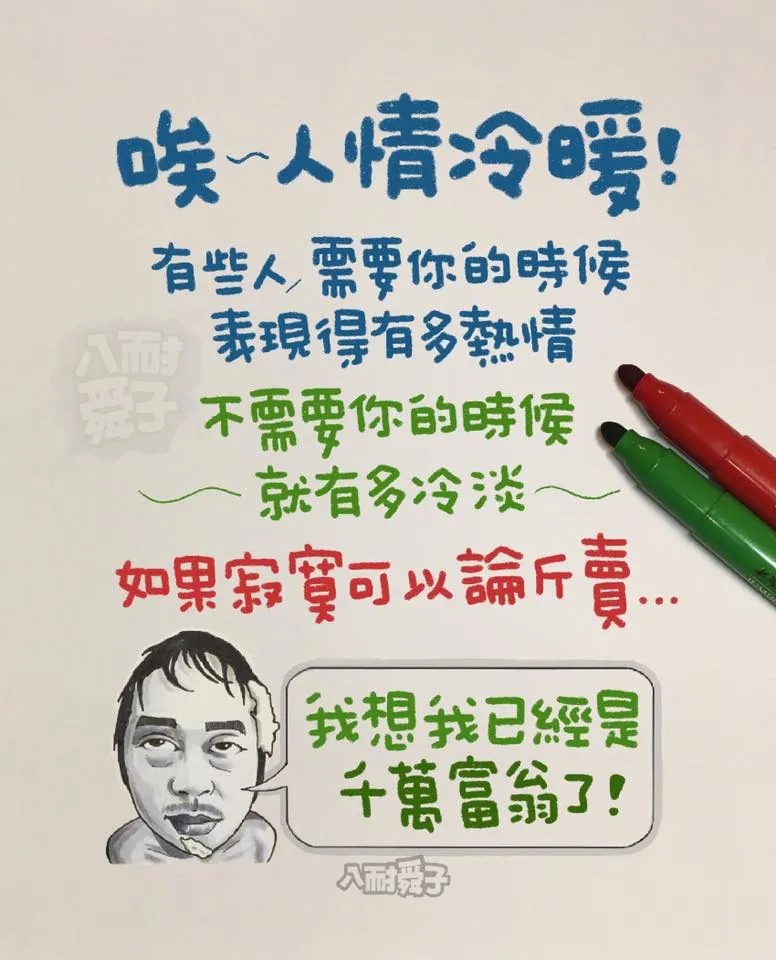 唉~人情冷暖!
有些人,需要你的時候
表現得有多熱情
八耐
舜子
不需要你的時候
~就有多冷淡~
如果寂寞可以論斤賣...
我想我已經是
千萬富翁了!
八耐舜子